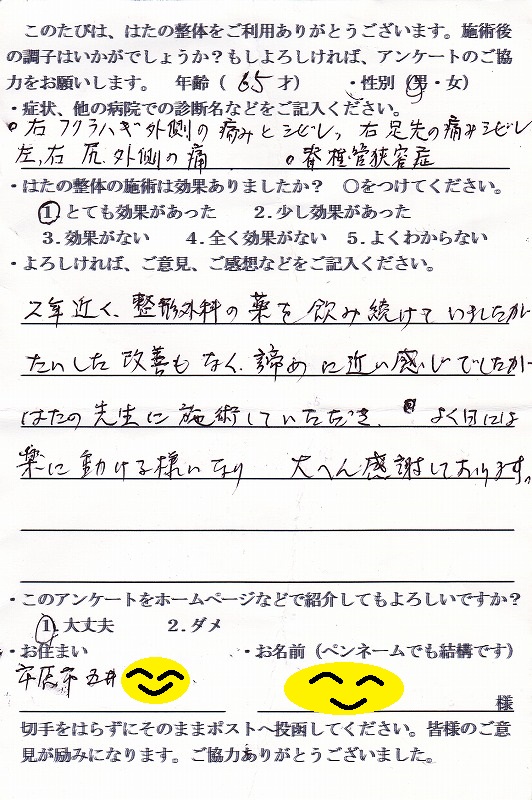 このたびは、はたの整体をご利用ありがとうございます。施術後
の調子はいかがでしょうか？もしよろしければ、アンケートのご協
力をお願いします。 年齢（ 65 才） ・性別（男・女）
・症状、他の病院での診断名などをご記入ください。
○右フクラハギ外側の痛みとシビレ、右足先の痛みシビレ
左、右尻、外側の痛 ○脊椎管狭窄症
・はたの整体の施術は効果ありましたか？ ○をつけてください。
1.とても効果があった 2.少し効果があった
3.効果がない 4.全く効果がない 5.よくわからない
・よろしければ、ご意見、ご感想などをご記入ください。
2年近く、整形外科の薬を飲み続けていましたが
たいした改善もなく、諦めに近い感じでしたが
はたの先生に施術していただき、よく日には
楽に動ける様になり 大へん感謝しております。
・このアンケートをホームページなどで紹介してもよろしいですか？
1.大丈夫 2.ダメ
・お住まい ・お名前（ペンネームでも結構です）
市原市五井
様
切手をはらずにそのままポストへ投函してください。皆様のご意
見が励みになります。ご協力ありがとうございました。